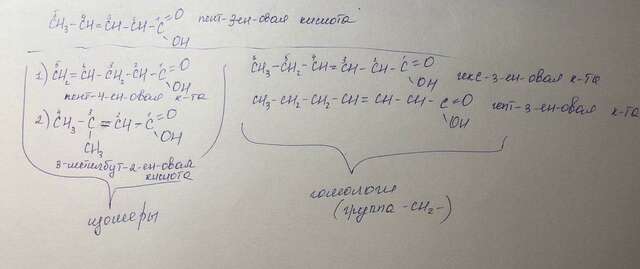 CH₃-CH=CH-CH-C=O пент-3-ен-овая кислота
OH
1) CH₂=CH-CH₂-CH-C=O
OH
пент-4-ен-овая к-та
2) CH₃-C=CH-C=O
OH
CH₃
3-метилбут-2-ен-овая
кислота
изомеры
CH₃-CH₂-CH=CH-CH-C=O гекс-3-ен-овая к-та
OH
CH₃-CH₂-CH₂-CH=CH-CH-C=O гепт-3-ен-овая к-та
OH
гомологи
(группа -CH₂-)